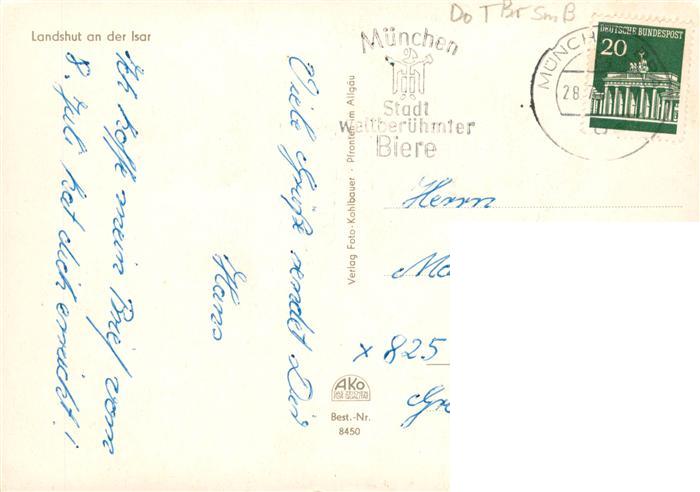 Landshut an der Isar
Ich hoffe mein Brief vom
8. Juli hat dich erreicht!
Viele Grüße sendet Dir
Hans
Verlag Foto-Kohlbauer · Pfronten im Allgäu
AKO
Best.-Nr.
8450
München
Stadt
weltberühmter
Biere
MÜNCH
28.7
DEUTSCHE BUNDESPOST
20
Herrn
Ma
x 825
Gr